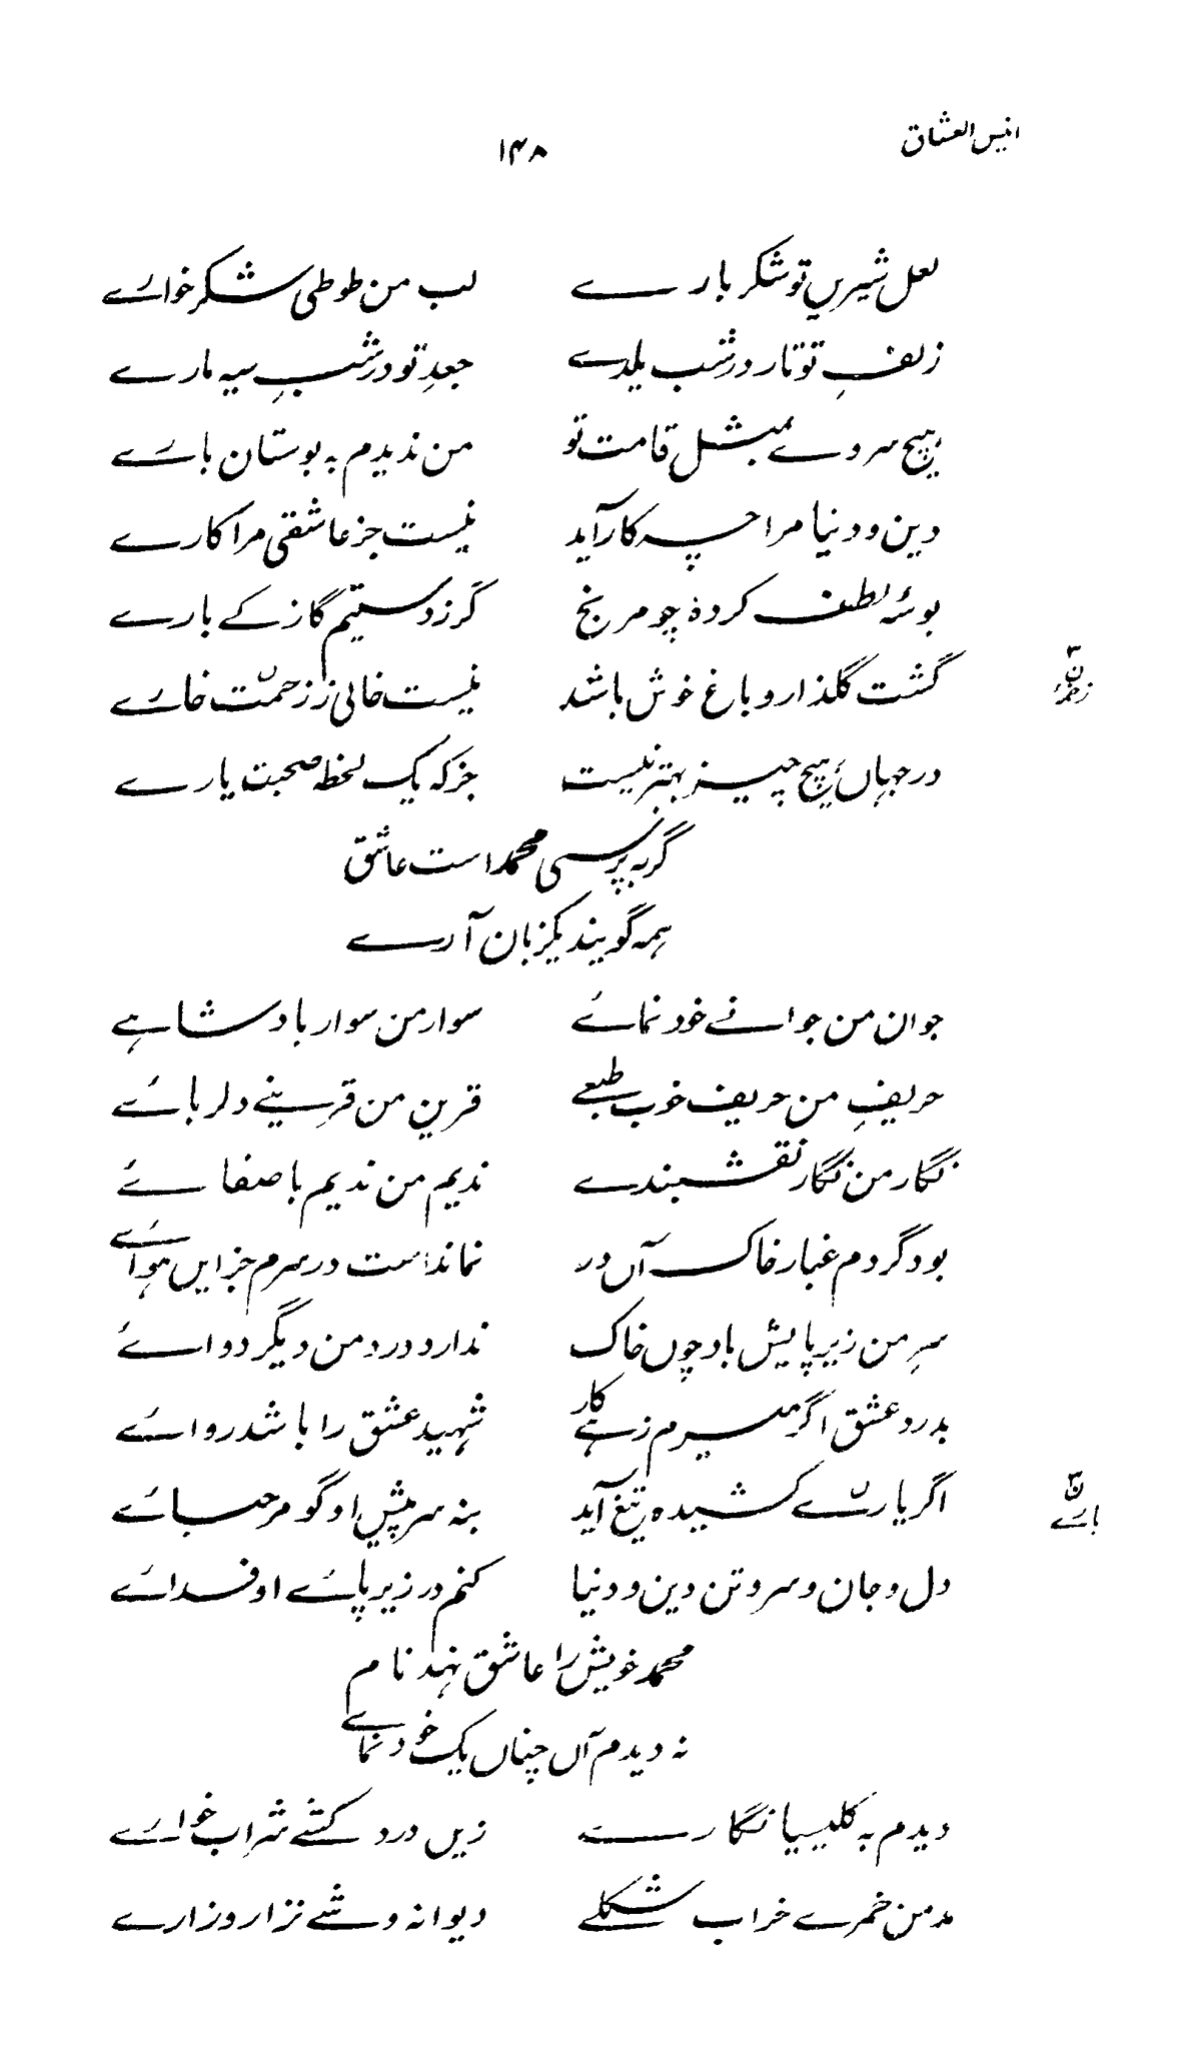 انیس العشاق
۱۴۸
لعل شیریں تو شکر بارے لب من طوطی شکر خوارے
زلفِ تو تار در شب یلدے جعدِ تو در شبِ سیہ مارے
ہیچ سروے بمثل قامت تو من ندیدم بہ بوستان بارے
دین و دنیا مرا چہ کار آید نیست جز عاشقی مرا کارے
بوسۂ لطف کردۂ چو مرنج گر زدستیم گاز کے بارے
گشت گلذار و باغ خوش باشد نیست خالی ز زحمت خارے
۳ ن
در جہاں ہیچ چیز بہتر نیست جز کہ یک لحظہ صحبت یارے
گر بہ پرسی محمد است عاشق
ہمہ گویند یکزبان آرے
جوان من جوانے خود نمائے سوار من سوار بادشاہے
حریفِ من حریف خوب طبعے قرین من قرینے دلربائے
نگار من نگار نقشبندے ندیم من ندیم با صفائے
بود گردم غبار خاک آں در نماند است در سرم جز ایں ہوائے
سرِ من زیر پایش باد چوں خاک ندارد درد من دیگر دوائے
بدرد عشق اگر میرم زہے کار شہید عشق را باشد روائے
اگر یارے کشیدہ تیغ آید بنہ سر پیش او گو مرحبائے
۳ ن
بارے
دل و جان و سر و تن دین و دنیا کنم در زیر پائے او فدائے
محمد خویش را عاشق نہد نام
نہ دیدم آں چناں یک خود نمائے
دیدم بہ کلیسیا نگارے زیں درد کشے شراب خوارے
مدمن خمرے خراب شکلے دیوانہ وشے نزار و زارے